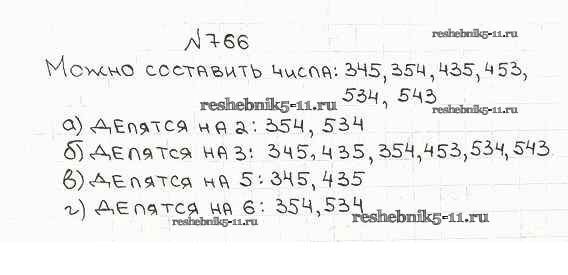 reshebnik5-11.ru
№766
Можно составить числа: 345, 354, 435, 453,
534, 543
reshebnik5-11.ru
reshebnik5-11.ru
а) делятся на 2: 354, 534
б) делятся на 3: 345, 435, 354, 453, 534, 543
в) делятся на 5: 345, 435
г) делятся на 6: 354, 534
reshebnik5-11.ru
reshebnik5-11.ru